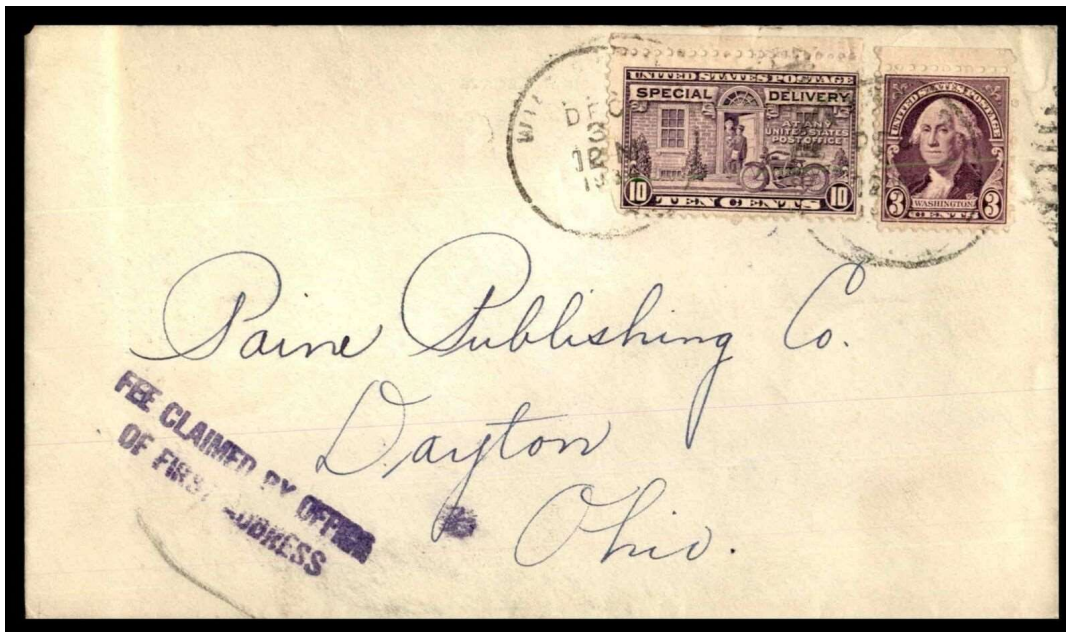 DEC
3
12 M
UNITED STATES POSTAGE
SPECIAL DELIVERY
AT ANY
UNITED STATES
POST OFFICE
10 TEN CENTS 10
UNITED STATES POSTAGE
WASHINGTON
3 CENTS 3
Paine Publishing Co.
Dayton
Ohio.
FEE CLAIMED BY OFFICE
OF FIRST ADDRESS